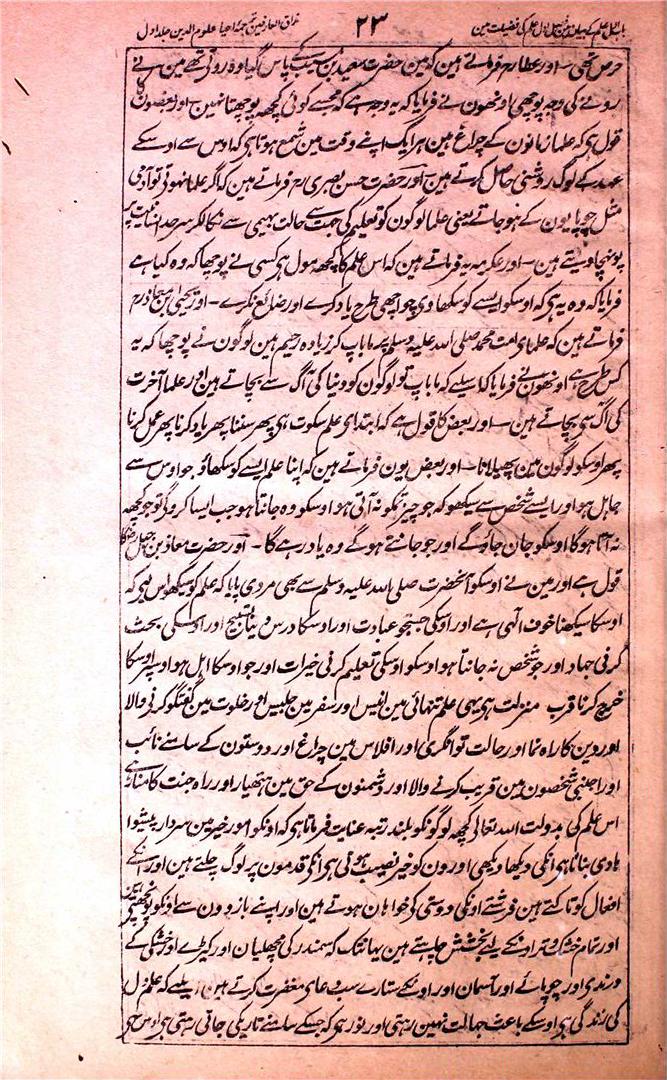 باب اول علم کے بیان مین فصل اول علم کی فضیلت مین ۲۳ مذاق العارفین ترجمہ احیاء علوم الدین جلد اول
حرص تھی ۔ اور عطا رح فرماتے ہین کہ مین حضرت سعید بن مسیب کے پاس گیا وہ روتی تھے مین نے
رونے کی وجہ پوچھی اونھون نے فرمایا کہ یہ وجہ ہے کہ مجھسے کوئی کچھہ پوچھتا نہین ۔ اور بعضون کا
قول ہی کہ علما زمانون کے چراغ ہین ہر ایک اپنے وقت مین شمع ہوتا ہی کہ اوس سے اوسکے
عہد کے لوگ روشنی حاصل کرتے ہین ۔ اور حضرت حسن بصری رح فرماتے ہین کہ اگر علما نہوتی تو آدمی
مثل چوپایون کے ہو جاتے یعنی علما لوگون کو تعلیم کی جہت سے حالت بہیمی سے نکالکر سرحد انسانیت پر
پونہچا دیتے ہین ۔ اور عکرمہ یہ فرماتے ہین کہ اس علم کا کچھہ مول ہی کسی نے پوچھا کہ وہ کیا ہے
فرمایا کہ وہ یہ ہی کہ اوسکو ایسے کو سکھا دی جو اچھی طرح یاد کرے اور ضائع نکرے ۔ اور یحییٰ ابن معاذ رح
فرماتے ہین کہ علمای امت محمد صلی اللہ علیہ وسلم پر ما باپ کی زیادہ رحیم ہین لوگون نے پوچھا کہ یہ
کس طرح ہے اونھون نے فرمایا کہ اسلیے کہ ما باپ تو لوگون کو دنیا کی آگ سے بچاتے ہین اور علما آخرت
کی آگ سی بچاتے ہین ۔ اور بعض کا قول ہے کہ ابتدای علم سکوت ہی پھر سننا پھر یاد کرنا پھر عمل کرنا
پھر اوسکو لوگون مین پھیلانا ۔ اور بعض یون فرماتے ہین کہ اپنا علم ایسے کو سکھاؤ جو اوس سے
جاہل ہو اور ایسے شخص سے سیکھو کہ جو چیز تمکو نہ آتی ہو اوسکو وہ جانتا ہو جب ایسا کروگی تو جو کچھہ
نہ آتا ہوگا اوسکو جان جاؤگے اور جو جانتے ہوگے وہ یاد رہے گا ۔ اور حضرت معاذ بن جبل رض کا
قول ہے اور مین نے اوسکو آنحضرت صلی اللہ علیہ وسلم سے بھی مروی پایا کہ علم کو سیکھو اس لیی کہ
اوسکا سیکھنا خوف الٓہی ہے اور اوسکی جستجو عبادت اور اوسکا درس دینا تسبیح اور اوسکی بحث
کرنی جہاد اور جو شخص نہ جانتا ہو اوسکو اوسکی تعلیم کرنی خیرات اور جو اوسکا اہل ہو اوسپر اوسکا
خرچ کرنا قرب منزلت ہی یہی علم تنہائی مین انیس اور سفر مین جلیس اور خلوت مین گفتگو کرنی والا
اور دین کا راہ نما اور حالت توانگری اور افلاس مین چراغ اور دوستون کے سامنے نائب
اور اجنبی شخصون مین قریب کرنے والا اور دشمنون کے حق مین ہتھیار اور راہ جنت کا منارہ ہے
اس علم کی بدولت اللہ تعالی کچھہ لوگونکو بلند رتبہ عنایت فرماتا ہی کہ اونکو امور خیر مین سردار پیشوا
ہادی بناتا ہی انکی دیکھا دیکھی اورون کو خیر نصیب ہوتی ہی انکی قدمون پر لوگ چلتے ہین اور انکے
افعال کو تاکتے ہین فرشتے اونکی دوستی کی خواہان ہوتے ہین اور اپنے بازوون سے اونکو پونچھتی ہین
اور تمام خشک و تر اونکے لیے بخشش چاہتے ہین یہانتک کہ سمندر کی مچھلیان اور کیڑے اور خشکی کے
درندی اور چوپائے اور آسمان اور اوسکے ستارے سب دعای مغفرت کرتے ہین اسلیے کہ علم دل
کی زندگی ہی اوسکے باعث جہالت نہین رہتی اور نور ہی کہ جسکے سامنے تاریکی جاتی رہتی ہی اوس ہی